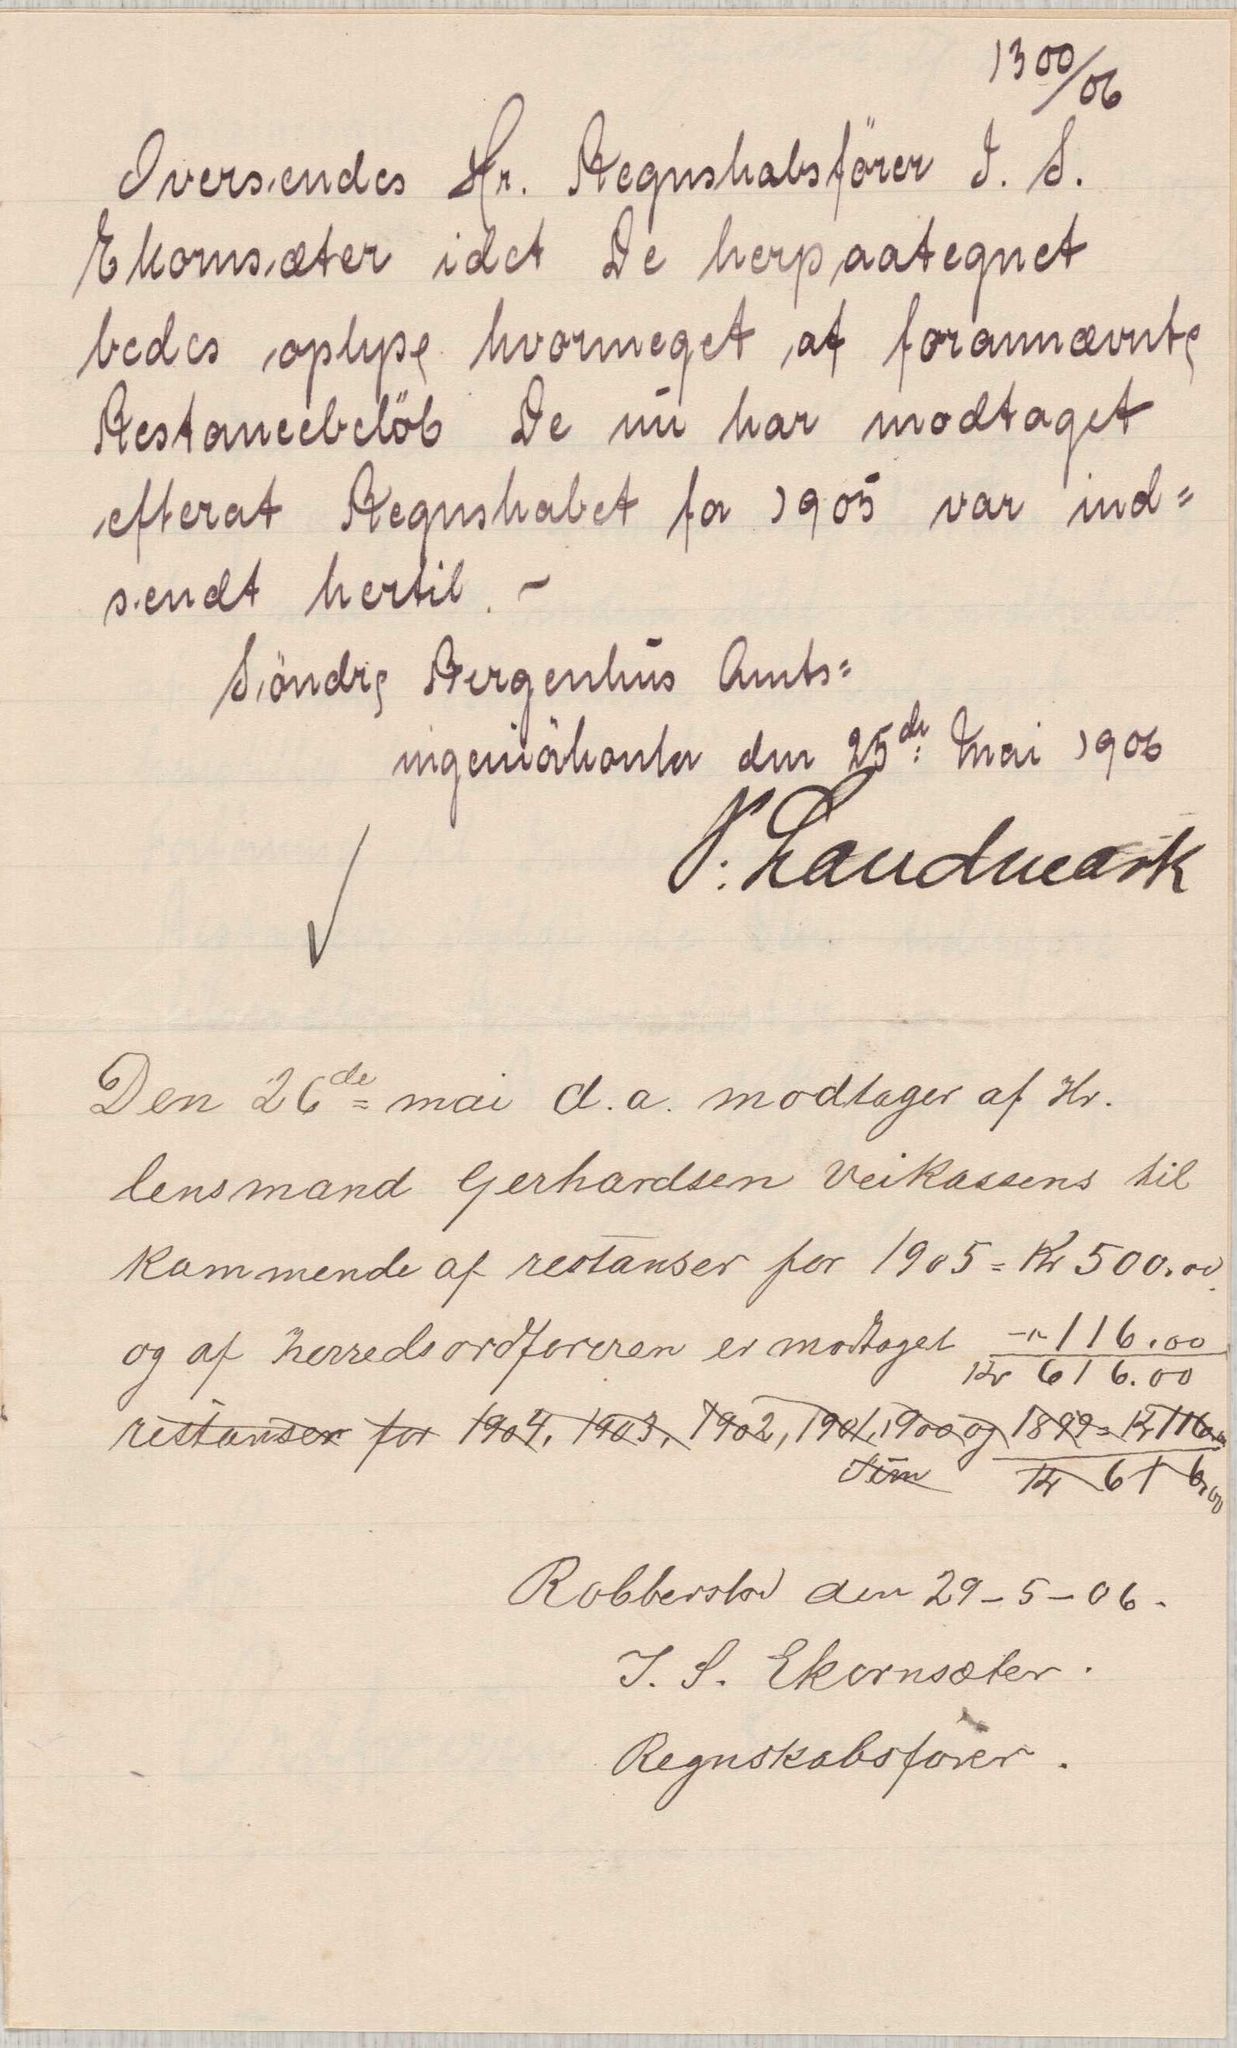 1300/06
Oversendes Hr. Regnskabsförer I. S.
Ekornsæter idet De herpaategnet
bedes oplyse hvormeget af forannævnte
Restancebelöb De nu har modtaget
efterat Regnskabet for 1905 var ind=
sendt hertil. -
Söndre Bergenhus Amts=
ingeniörkontor den 25de Mai 1906
N. Landmark
Den 26de mai d.a. modtager af Hr.
lensmand Gerhardsen Veikassens til
kommende af restanser for 1905 = Kr 500.00.
og af herredsordføreren er modtaget -"- 116.00
Kr 616.00
restanser for 1904, 1903, 1902, 1901, 1900 og 1899 = Kr 116.00
Sum Kr 616.00
Robberstad den 29-5-06.
I. S. Ekornsæter.
Regnskabsfører.